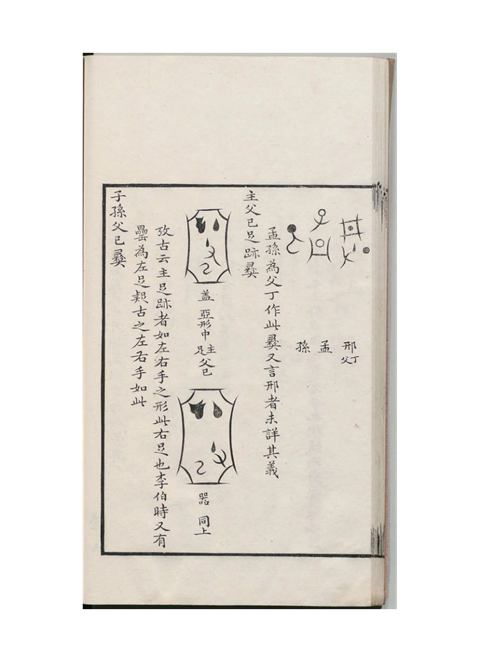 邢父丁
孟
孫
孟孫為父丁作此彞又言邢者未詳其義
主父已足跡彞
蓋 亞形中主父已足
器 同上
攷古云主足跡者如左右手之形此右足也李伯時又有
罍為左足䂓古之左右手如此
子孫父已彞